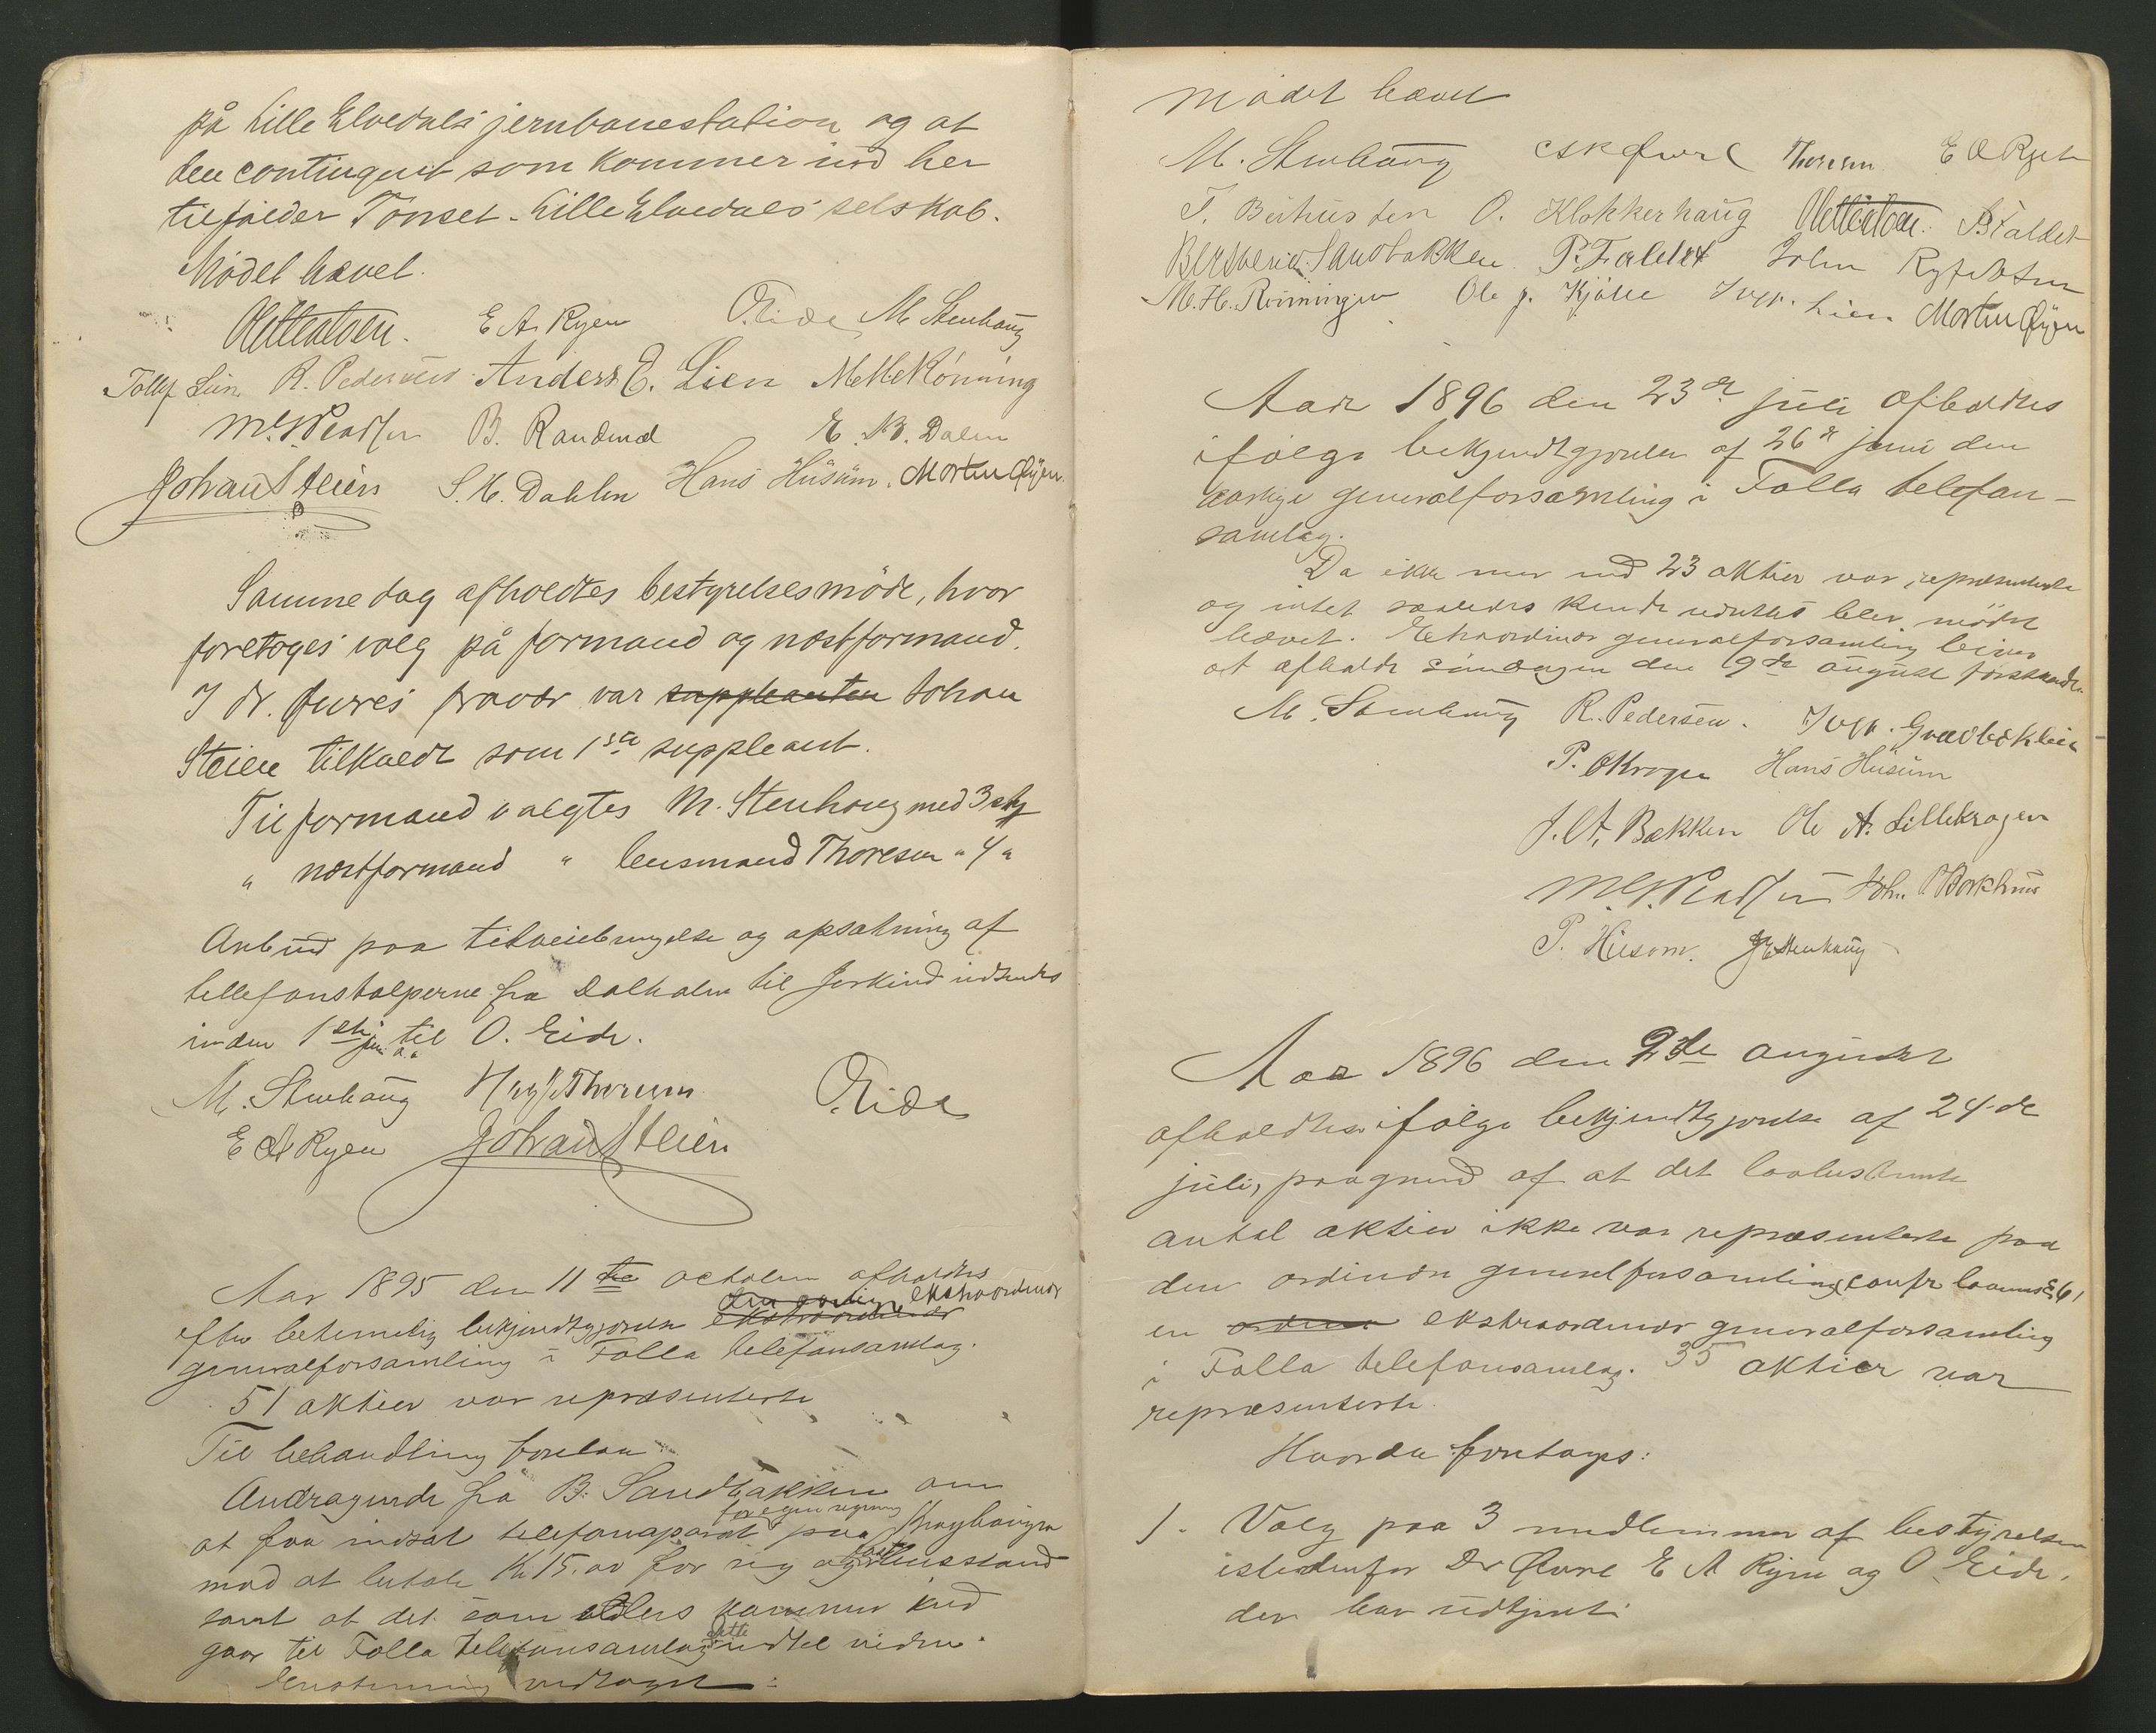 på Lille Elvedals jernbanestation og at
den contingent som kommer ind her
tilfalder Tönset-Lille Elvedals selskab.
Mödet hævet.
E A Ryen O. Eide M Stenhaug
Tollef Lien R. Pedersen Anders E. Lien
B. Randmæl E. K. Dalen
Johan Steien S. M. Dahlen Hans Husum. Morten Øyen
Samme dag afholdtes bestyrelsesmöde, hvor
foretoges valg på formand og næstformand.
I dr. Øvres fravær var suppleanten Johan
Steien tilkaldt som 1ste suppleant.
Til formand valgtes M. Stenhaug med 3 st
" næstformand " lensmand Thoresen " 4 "
Anbud paa tilveiebringelse og opsætning af
tellefonstolperne fra Dalholen til Jerkind indsendes
inden 1ste jan. til O. Eide.
M. Stenhaug Thoresen O. Eide
E A Ryen Johan Steien
Aar 1895 den 11te october afholdtes
efter betimelig bekjendtgjörelse ekstraordinær den aarlige ekstraordinær
generalforsamling i Folla telefonsamlag.
51 aktier var repræsenterte
Til behandling forelaa
Andragende fra B. Sandbakken om
at faa indsat telefonaparat for egen regning paa
mod at betale Kr 15.00 for sig og husstand
samt at det som ellers kommer ind
gaar til Folla telefonsamlag dette indtil videre.
Enstemmig vedtaget.
Mödet hævet
M. Stenhaug Thoresen E A Ryen
T. Bærhusten O. Klokkerhaug
Bersvend Sandbakken P. Faldet John
M. H. Rönningen Ole J. Kjölle Ingv. Lien Morten Øyen
Aar 1896 den 23de juli afholdtes
ifölge bekjendtgjörelse af 26de juni den
aarlige generalforsamling i Folla telefon-
samlag.
Da ikke mer end 23 aktier var repræsenterte
og intet saaledes kunde udrettes blev mödet
hævet. Ekstraordinær generalforsamling bliver
at afholde söndagen den 9de august förstkomende.
M. Stenhaug R. Pedersen. Ingv. Grædbækli
P. O Krogen Hans Husum
J. A. Bakken Ole A. Lillekrogen
John Borkhus
P. Husom. Stenhaug
Aar 1896 den 9de august
afholdtes ifölge bekjendtgjörelse af 24-de
juli, paagrund af at det lovbestemte
antal aktier ikke var repræsenterte paa
den ordinære generalforsamling (confr lovenes § 6)
en ordinær ekstraordinær generalforsamling
i Folla telefonsamlag. 35 aktier var
repræsenterte.
Hvorda foretoges:
1. Valg paa 3 medlemmer af bestyrelsen
istedenfor Dr Øvre E A Ryen og O Eide,
der har udtjent.